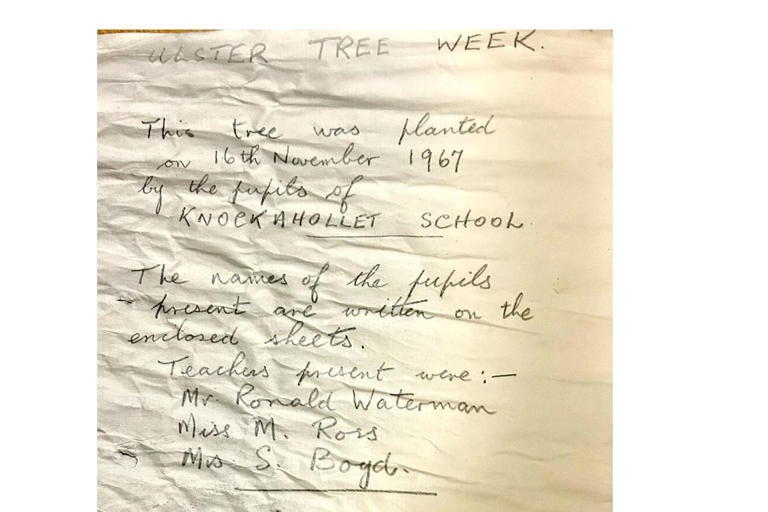 ULSTER TREE WEEK.
This tree was planted
on 16th November 1967
by the pupils of
KNOCKAHOLLET SCHOOL
The names of the pupils
present are written on the
enclosed sheets.
Teachers present were:—
Mr. Ronald Waterman
Miss M. Ross
Mrs S. Boyd.